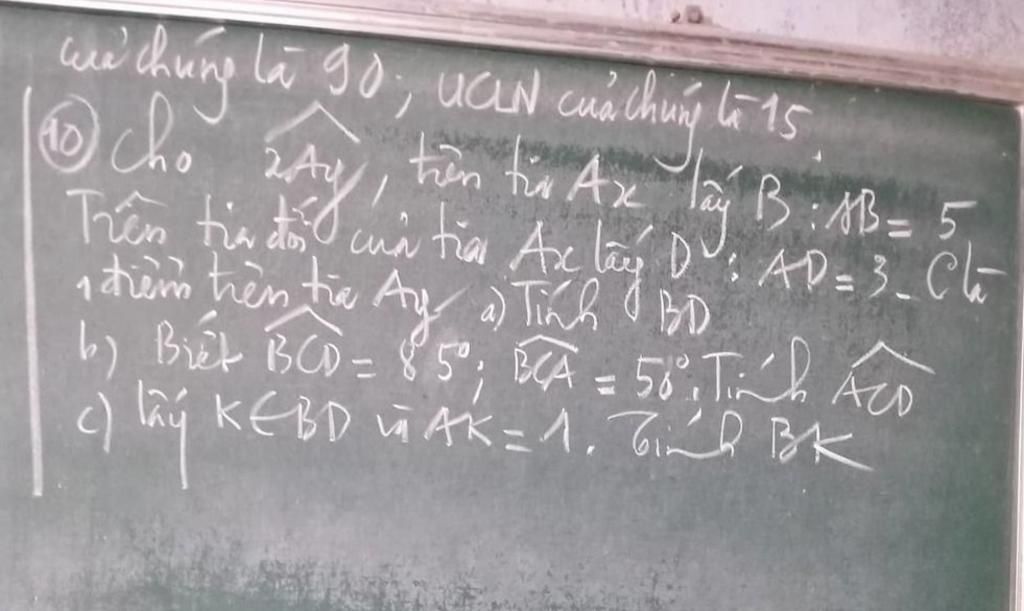 của chúng là 90; UCLN của chúng là 15.
10 Cho xAy, trên tia Ax lấy B: AB = 5
Trên tia đối của tia Ax lấy D: AD = 3. C là
1 điểm trên tia Ay. a) Tính BD
b) Biết BCD = 85°; BCA = 50°. Tính ACD
c) lấy K ∈ BD và AK = 1. Tính BK